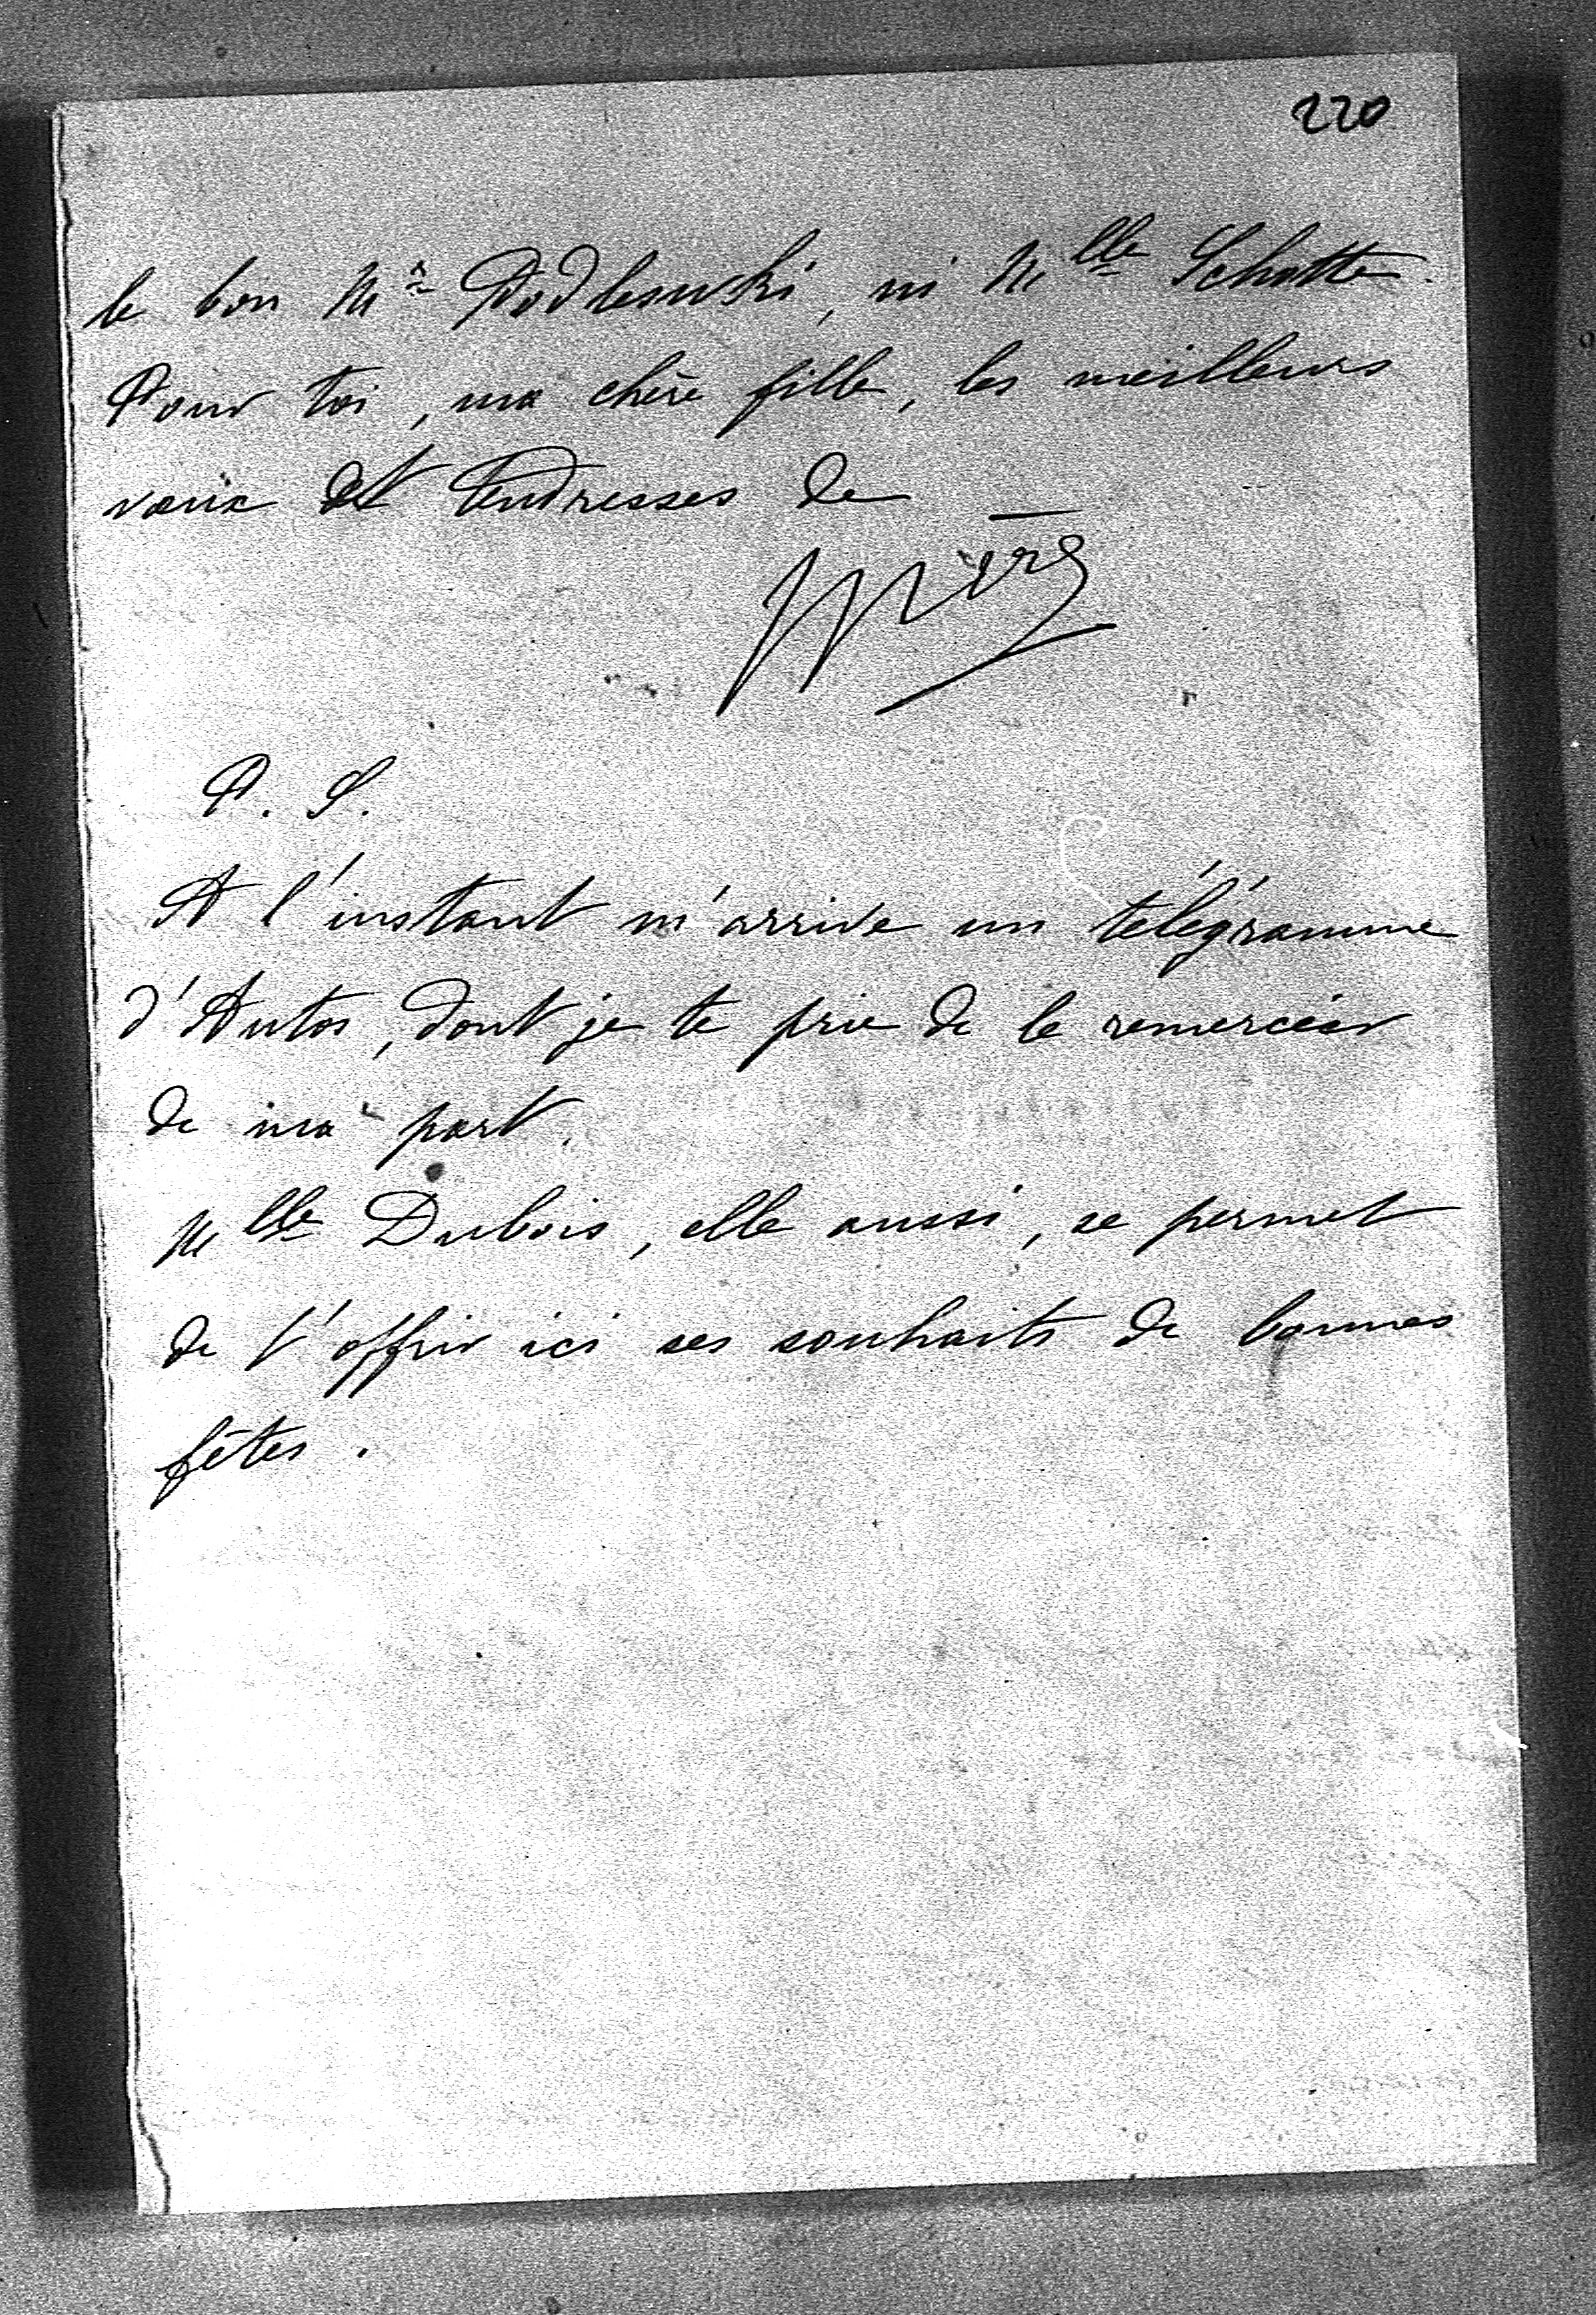 220
le bon Mr Podlewski, ni Mlle Schotte.
Pour toi, ma chère fille, les meilleurs
vœux et tendresses de
Mère
P. S.
A l'instant m'arrive un télégramme
d'Autos, dont je te prie de le remercier
de ma part.
Mlle Dubois, elle aussi, se permet
de t'offrir ici ses souhaits de bonnes
fêtes.